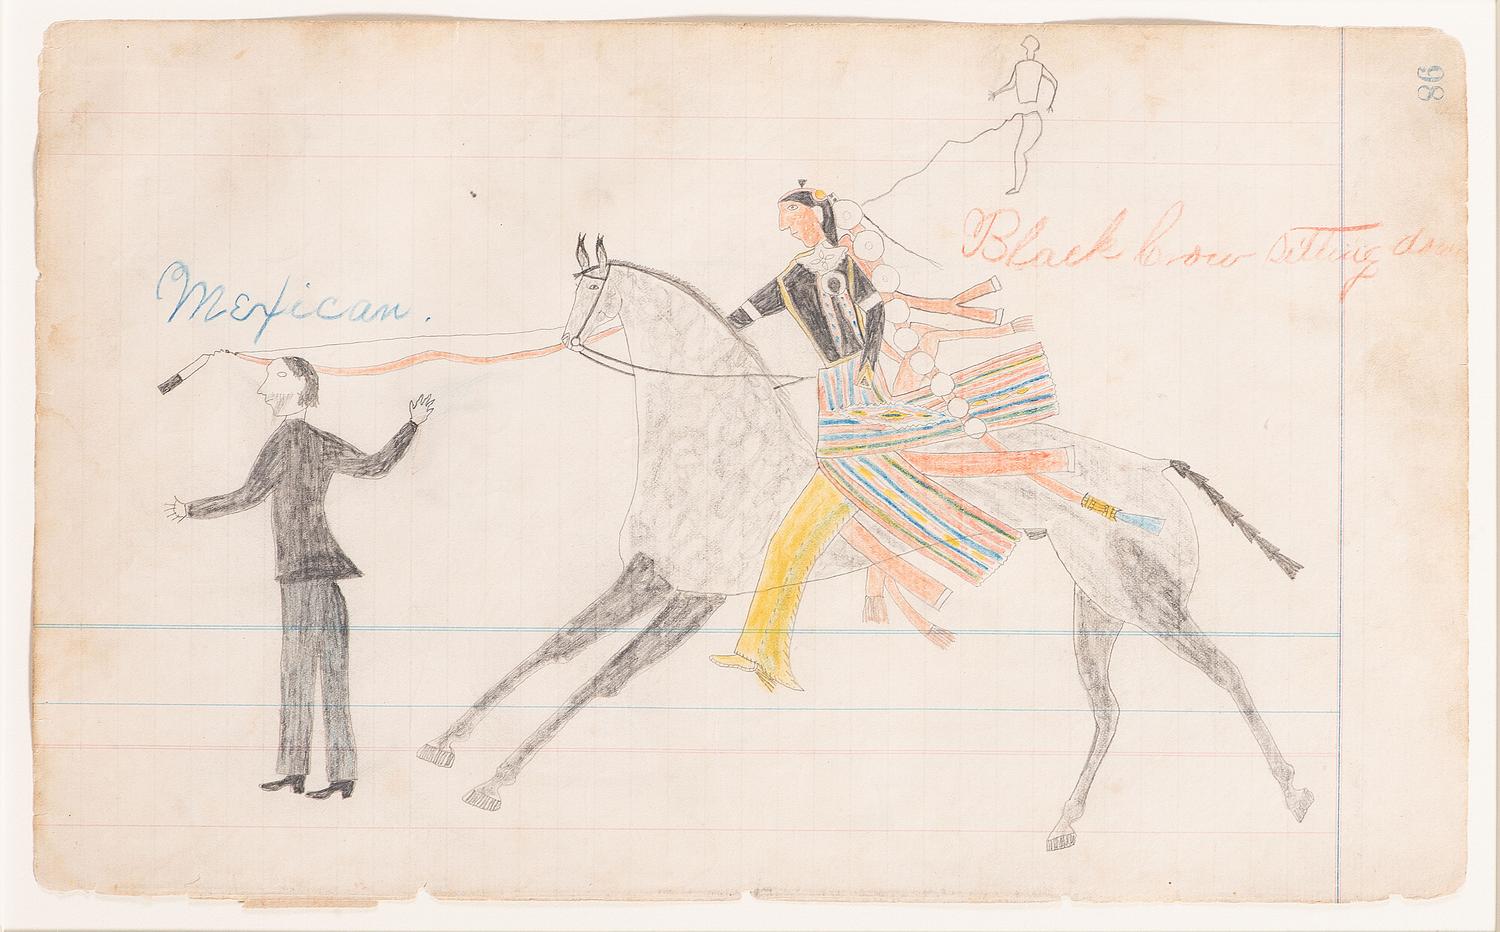 Mexican.
Black Cow Sitting down